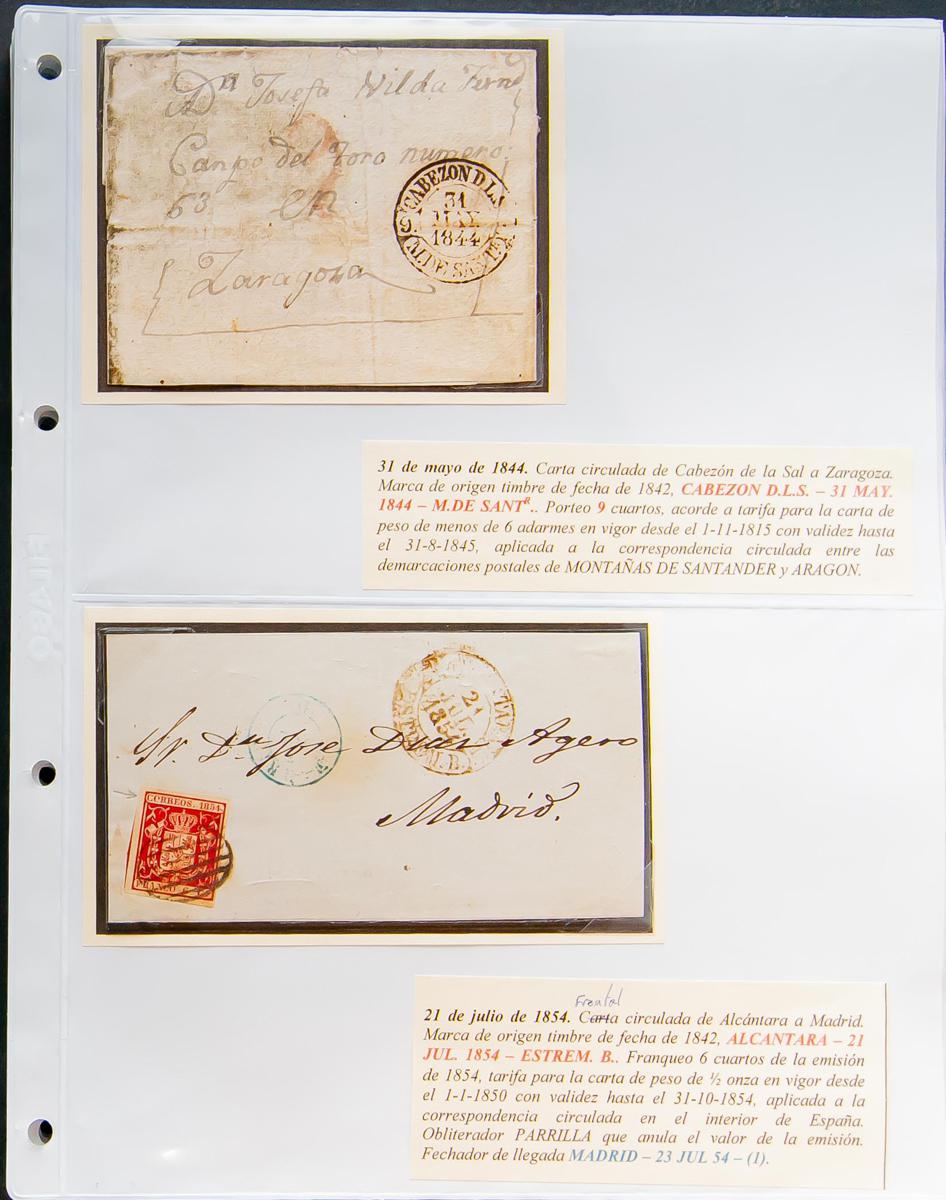 Dn Josefa Wilda Fern
Canpo del toro numero
63 en
Zaragoza
CABEZON D L.S.
31
MAY.
1844
M.DE SANT.R
31 de mayo de 1844. Carta circulada de Cabezón de la Sal a Zaragoza.
Marca de origen timbre de fecha de 1842, CABEZON D.L.S. – 31 MAY.
1844 – M.DE SANTR.. Porteo 9 cuartos, acorde a tarifa para la carta de
peso de menos de 6 adarmes en vigor desde el 1-11-1815 con validez hasta
el 31-8-1845, aplicada a la correspondencia circulada entre las
demarcaciones postales de MONTAÑAS DE SANTANDER y ARAGON.
21
JUL
185
Sr. Dn Jose Diaz Agero
Madrid.
CORREOS. 1854.
FRANCO 6
Frontal
21 de julio de 1854. Carta circulada de Alcántara a Madrid.
Marca de origen timbre de fecha de 1842, ALCANTARA – 21
JUL. 1854 – ESTREM. B.. Franqueo 6 cuartos de la emisión
de 1854, tarifa para la carta de peso de ½ onza en vigor desde
el 1-1-1850 con validez hasta el 31-10-1854, aplicada a la
correspondencia circulada en el interior de España.
Obliterador PARRILLA que anula el valor de la emisión.
Fechador de llegada MADRID – 23 JUL 54 – (1).